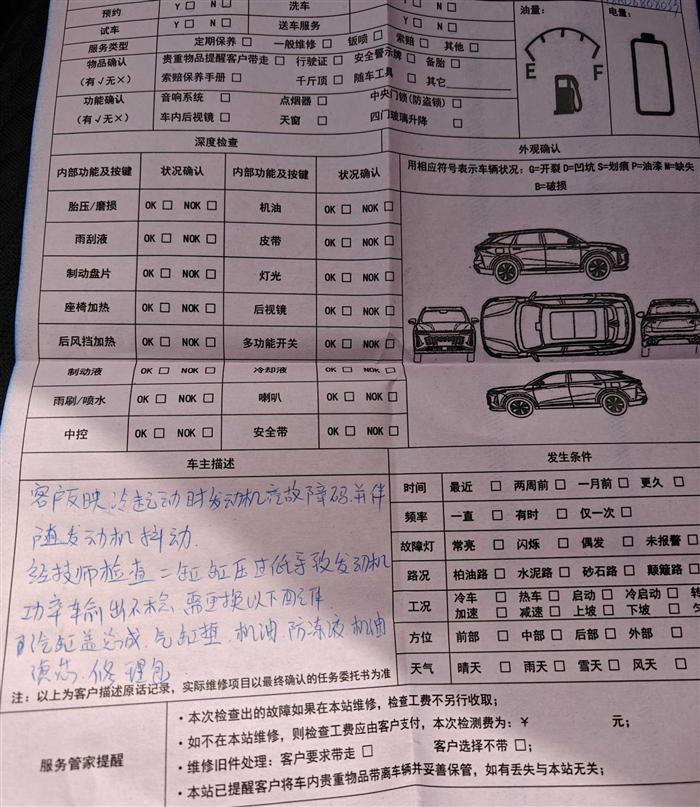 预约 Y □ N □ 洗车 Y □ N □ 油量: 电量:
试车 Y □ N □ 送车服务 Y □ N □
服务类型 定期保养 □ 一般维修 □ 钣喷 □ 索赔 □ 其他 □
物品确认 (有√无×) 贵重物品提醒客户带走 □ 行驶证 □ 安全警示牌 □ 备胎 □
索赔保养手册 □ 千斤顶 □ 随车工具 □ 其它
功能确认 (有√无×) 音响系统 □ 点烟器 □ 中央门锁(防盗锁) □
车内后视镜 □ 天窗 □ 四门玻璃升降 □
E F
深度检查 外观确认
内部功能及按键 状况确认 内部功能及按键 状况确认
用相应符号表示车辆状况: G=开裂 D=凹坑 S=划痕 P=油漆 M=缺失
B=破损
胎压/磨损 OK □ NOK □ 机油 OK □ NOK □
雨刮液 OK □ NOK □ 皮带 OK □ NOK □
制动盘片 OK □ NOK □ 灯光 OK □ NOK □
座椅加热 OK □ NOK □ 后视镜 OK □ NOK □
后风挡加热 OK □ NOK □ 多功能开关 OK □ NOK □
制动液 OK □ NOK □ 冷却液 OK □ NOK □
雨刷/喷水 OK □ NOK □ 喇叭 OK □ NOK □
中控 OK □ NOK □ 安全带 OK □ NOK □
车主描述
客户反映冷起动时发动机亮故障码并伴
随发动机抖动.
经技师检查二缸缸压过低导致发动机
功率输出不稳.需更换以下配件
汽缸盖总成.气缸垫.机油.防冻液机油
滤芯.修理包
注: 以上为客户描述原话记录, 实际维修项目以最终确认的任务委托书为准
发生条件
时间 最近 □ 两周前 □ 一月前 □ 更久 □
频率 一直 □ 有时 □ 仅一次 □
故障灯 常亮 □ 闪烁 □ 偶发 □ 未报警 □
路况 柏油路 □ 水泥路 □ 砂石路 □ 颠簸路 □
工况 冷车 □ 热车 □ 启动 □ 冷启动 □
加速 □ 减速 □ 上坡 □ 下坡 □
方位 前部 □ 中部 □ 后部 □ 外部 □
天气 晴天 □ 雨天 □ 雪天 □ 风天 □
服务管家提醒
·本次检查出的故障如果在本站维修, 检查工费不另行收取;
·如不在本站维修, 则检查工费应由客户支付, 本次检测费为: ¥ 元;
·维修旧件处理: 客户要求带走 □ 客户选择不带 □;
·本站已提醒客户将车内贵重物品带离车辆并妥善保管, 如有丢失与本站无关;